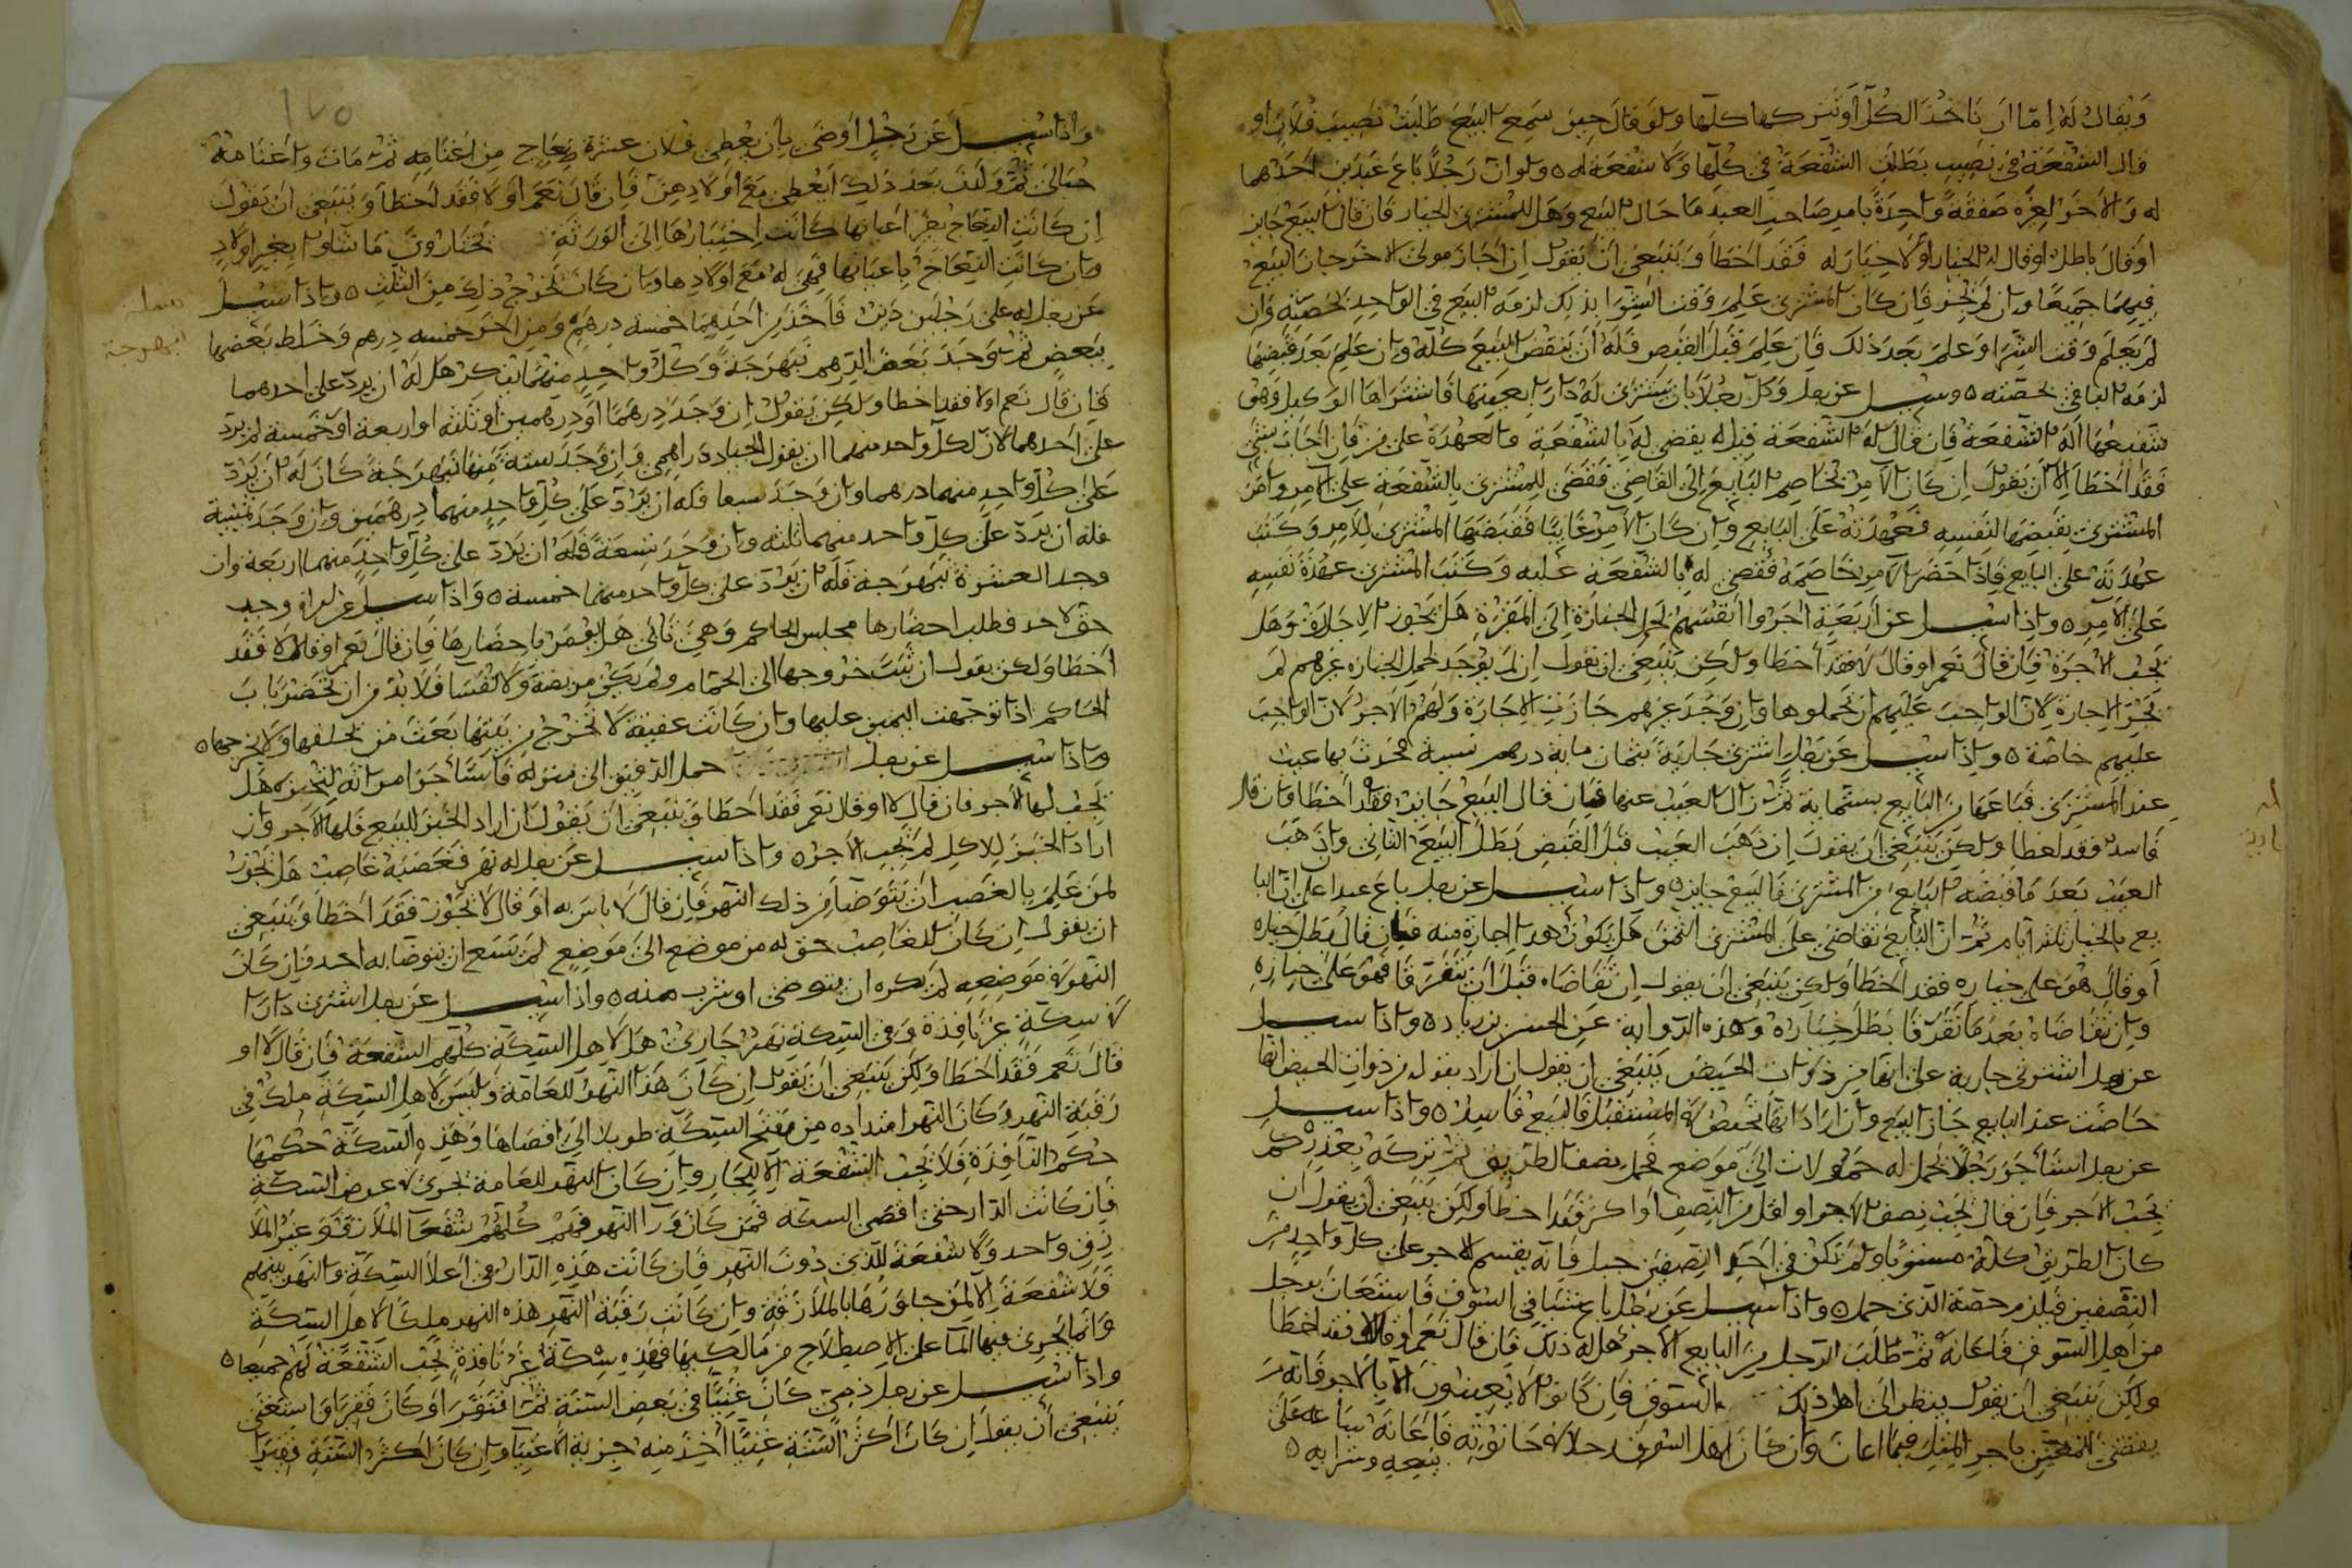 ويقال له إما أن تأخذ الكل أو تتركها كلها ولو قال حين سمع البيع طلبت نصيب فلان أو
قال الشفعة في نصيب بطلت الشفعة في كلها ولا شفعة له ولو أن رجلا باع عبدين أحدهما
له والآخر لغيره صفقة واحدة بامر صاحب العبد ما حال البيع وهل للمشتري الخيار فان قال البيع جايز
أو قال باطل أو قال له الخيار أو لا خيار له فقد اخطأ وينبغي أن يقول إن أجاز مولى الآخر جاز البيع
فيهما جميعا وان لم يجز فإن كان المشتري علم وقت الشرا بذلك لزمه البيع في الواحد بحصته وان
لم يعلم وقت الشرا وعلم بعد ذلك فإن علم قبل القبض فله أن ينقض البيع كله وإن علم بعد قبضها
لزمه الباقي بحصته وسيل عن رجل وكل رجلا بان يشتري له دارا بعينها فاشتراها الوكيل وهو
شفيعها أله الشفعة فان قال له الشفعة قيل له يقضى له بالشفعة والعهدة على من فإن أجاب بشي
فقد أخطأ إلا أن يقول إن كان الآمر يخاصم البايع إلى القاضي فقضى للمشتري بالشفعة على الآمر وامر
المشتري بقبضها لنفسه فعهدته على البايع وإن كان الآمر غايبا فقبضها المشتري للآمر وكتب
عهدته على البايع فاذا حضر الآمر خاصمه فقضي له بالشفعة عليه وكتب المشتري عهدة نفسه
على الآمر وإذا سيل عن أربعة أجروا أنفسهم لحمل الجنازة إلى المقبرة هل يجوز الإجارة وهل
يجب الأجرة فإن قال نعم أو قال لا فقد أخطا ولكن ينبغي أن يقول إن لم يوجد لحمل الجنازه غيرهم لم
تجز الإجارة لان الواجب عليهم أن يحملوها وإن وجد غيرهم جازت الإجارة ولهم الأجر لان الواجب
عليهم خاصة وإذا سيل عن رجل اشترى جارية بثمان ماية درهم نسية فحدث بها عيب
عند المشتري فباعها من البايع بستماية ثم زال العيب عنها فإن قال البيع جايز فقد أخطأ وان قال
فاسد فقد أخطا ولكن ينبغي أن يقول إن ذهب العيب قبل القبض بطل البيع الثاني وإن ذهب
العيب بعد ما قبضه البايع من المشتري فالبيع جايز وإذا سيل عن رجل باع عبدا على أن البا
يع بالخيار ثلثة أيام ثم ان البايع تقاضى على المشتري الثمن هل يكون هذا إجازة منه فان قال بطل خياره
أو قال هو على خياره فقد أخطأ ولكن ينبغي أن يقول إن تقاضاه قبل أن يتفرقا فهو على خياره
وإن تقاضاه بعد ما تفرقا بطل خياره وهذه الرواية عن الحسن بن زياد وإذا سيل
عن رجل اشترى جارية على أنها من ذوات الحيض ينبغي أن يقول ان أراد بقوله من ذوات الحيض انها
حاضت عند البايع جاز البيع وان اراد انها تحيض في المستقبل فالبيع فاسد وإذا سيل
عن رجل استأجر رجلا يحمل له حمولات إلى موضع فحمل نصف الطريق ثم تركه بعذر كم
يجب الأجر فإن قال يجب نصف الأجر او اقل من النصف أو اكثر فقد اخطأ ولكن ينبغي أن يقول ان
كان الطريق كله مستويا ولم تكن في أحد النصفين جبل فإنه يقسم الاجر على كل واحد من
النصفين فيلزمه حصة الذي حمل وإذا سيل عن رجل باع شيئا في السوق فاستعان برجل
من أهل السوق فأعانه ثم طلب الرجل من البايع الأجر هل له ذلك فإن قال نعم أو قال لا فقد اخطأ
ولكن ينبغي أن يقول ينظر إلى اهل ذلك السوق فإن كانوا لا يعينون إلا بالأجر فانه
يقضى للمعين باجر المثل فيما اعان وإن كان اهل السوق حانوته فأعانه على
بيعه وشرايه
١٧٥
وإذا سيل عن رجل أوصى بأن يعطى فلان عشرة نعاج من أغنامه ثم مات وأغنامه
حبالى ثم ولدت بعد ذلك أيعطى مع أولادهن فإن قال نعم أو لا فقد أخطأ وينبغي أن يقول
إن كانت النعاج بغير أعيانها كانت اختيارها إلى الورثة يختارون ما شاوا بغير أولاد
وإن كانت النعاج بأعيانها فهي له مع أولادها وإن كان تخرج ذلك من الثلث وإذا سيل
عن رجل له على رجلين دين فأخذ من أحدهما خمسة درهم ومن آخر خمسه درهم وخلط بعضها
ببعض ثم وجد بعض الدرهم نبهرجة وكل واحد منهما ينكر هل له أن يرد على أحدهما
فإن قال نعم أو لا فقد أخطا ولكن يقول إن وجد درهما أو درهمين أو ثلثة أو اربعة أو خمسة لم يرد
على أحدهما لأن لكل واحد منهما أن يقول الجياد دراهمي وإن وجد ستة منها نبهرجة كان له أن يرد
على كل واحد منهما درهما وان وجد سبعا فله أن يرد على كل واحد منهما درهمين وإن وجد ثمنية
فله أن يرد على كل واحد منهما ثلثه وإن وجد تسعة فله ان يرد على كل واحد منهما اربعة وان
وجد العشرة نبهرجة فله أن يرد على كل واحد منهما خمسة وإذا سيل عن امراة وجب
حق لاحد فطلب احضارها مجلس الحاكم وهي تأبى هل يومر باحضارها فإن قال نعم أو قال لا فقد
أخطأ ولكن يقول ان ثبت خروجها الى الحمام ولم يكن مريضة ولا نفسا فلا بد من ان تحضر باب
الحاكم إذا توجهت اليمين عليها وإن كانت عفيفة لا تخرج من بيتها بعث من يحلفها ولا يخرجها
وإذا سيل عن رجل حمل الدقيق إلى منزله فاستأجر امراته لتخبزه هل
يجب لها الأجر فان قال لا أو قال نعم فقد أخطأ وينبغي أن يقول ان اراد الخبز للبيع فلها الأجر وان
اراد الخبز للاكل لم يجب الأجر وإذا سيل عن رجل له نهر فغصبه غاصب هل يجوز
لمن علم بالغصب ان يتوضأ من ذلك النهر فإن قال لا باس به أو قال لا يجوز فقد أخطأ وينبغي
ان يقول إن كان للغاصب حق له من موضع الى موضع لم يسع ان يتوضأ به احد فإن كان
النهر في موضعه لم يكره ان يتوضى او شرب منه وإذا سيل عن رجل اشترى دارا
في سكة غير نافذة وفي السكة نهر جاري هل لاهل السكة كلهم الشفعة فإن قال لا أو
قال نعم فقد أخطا ولكن ينبغي أن يقول إن كان هذا النهر للعامة وليس لاهل السكة ملك في
رقبة النهر وكان النهر امتداده من مفتح السكة طويلا إلى اقصاها وهذه السكة حكمها
حكم النافذة فلا تجب الشفعة إلا للجار وإن كان النهر للعامة يجري في عرض السكة
فإن كانت الدار في اقصى السكة فمن كان ورا النهر فهم كلهم شفعا الملازق وغير الملا
زق واحد ولا شفعة للذي دون النهر فإن كانت هذه الدار في أعلا السكة والنهر بينهم
فلا شفعة إلا لمن جاورها بالملازقة وإن كانت رقبة النهر هذه النهر ملكا لاهل السكة
وانما يجري فيها الما على الاصطلاح من مالكيها فهذه سكة غير نافذة يجب الشفعة لهم جميعا
وإذا سيل عن رجل ذمي كان غنيا في بعض السنة ثم افتقر أو كان فقيرا واستغنى
ينبغي أن يقول إن كان أكثر السنة غنيا أخذ منه جزية الاغنيا وإن كان أكثر السنة فقيرا